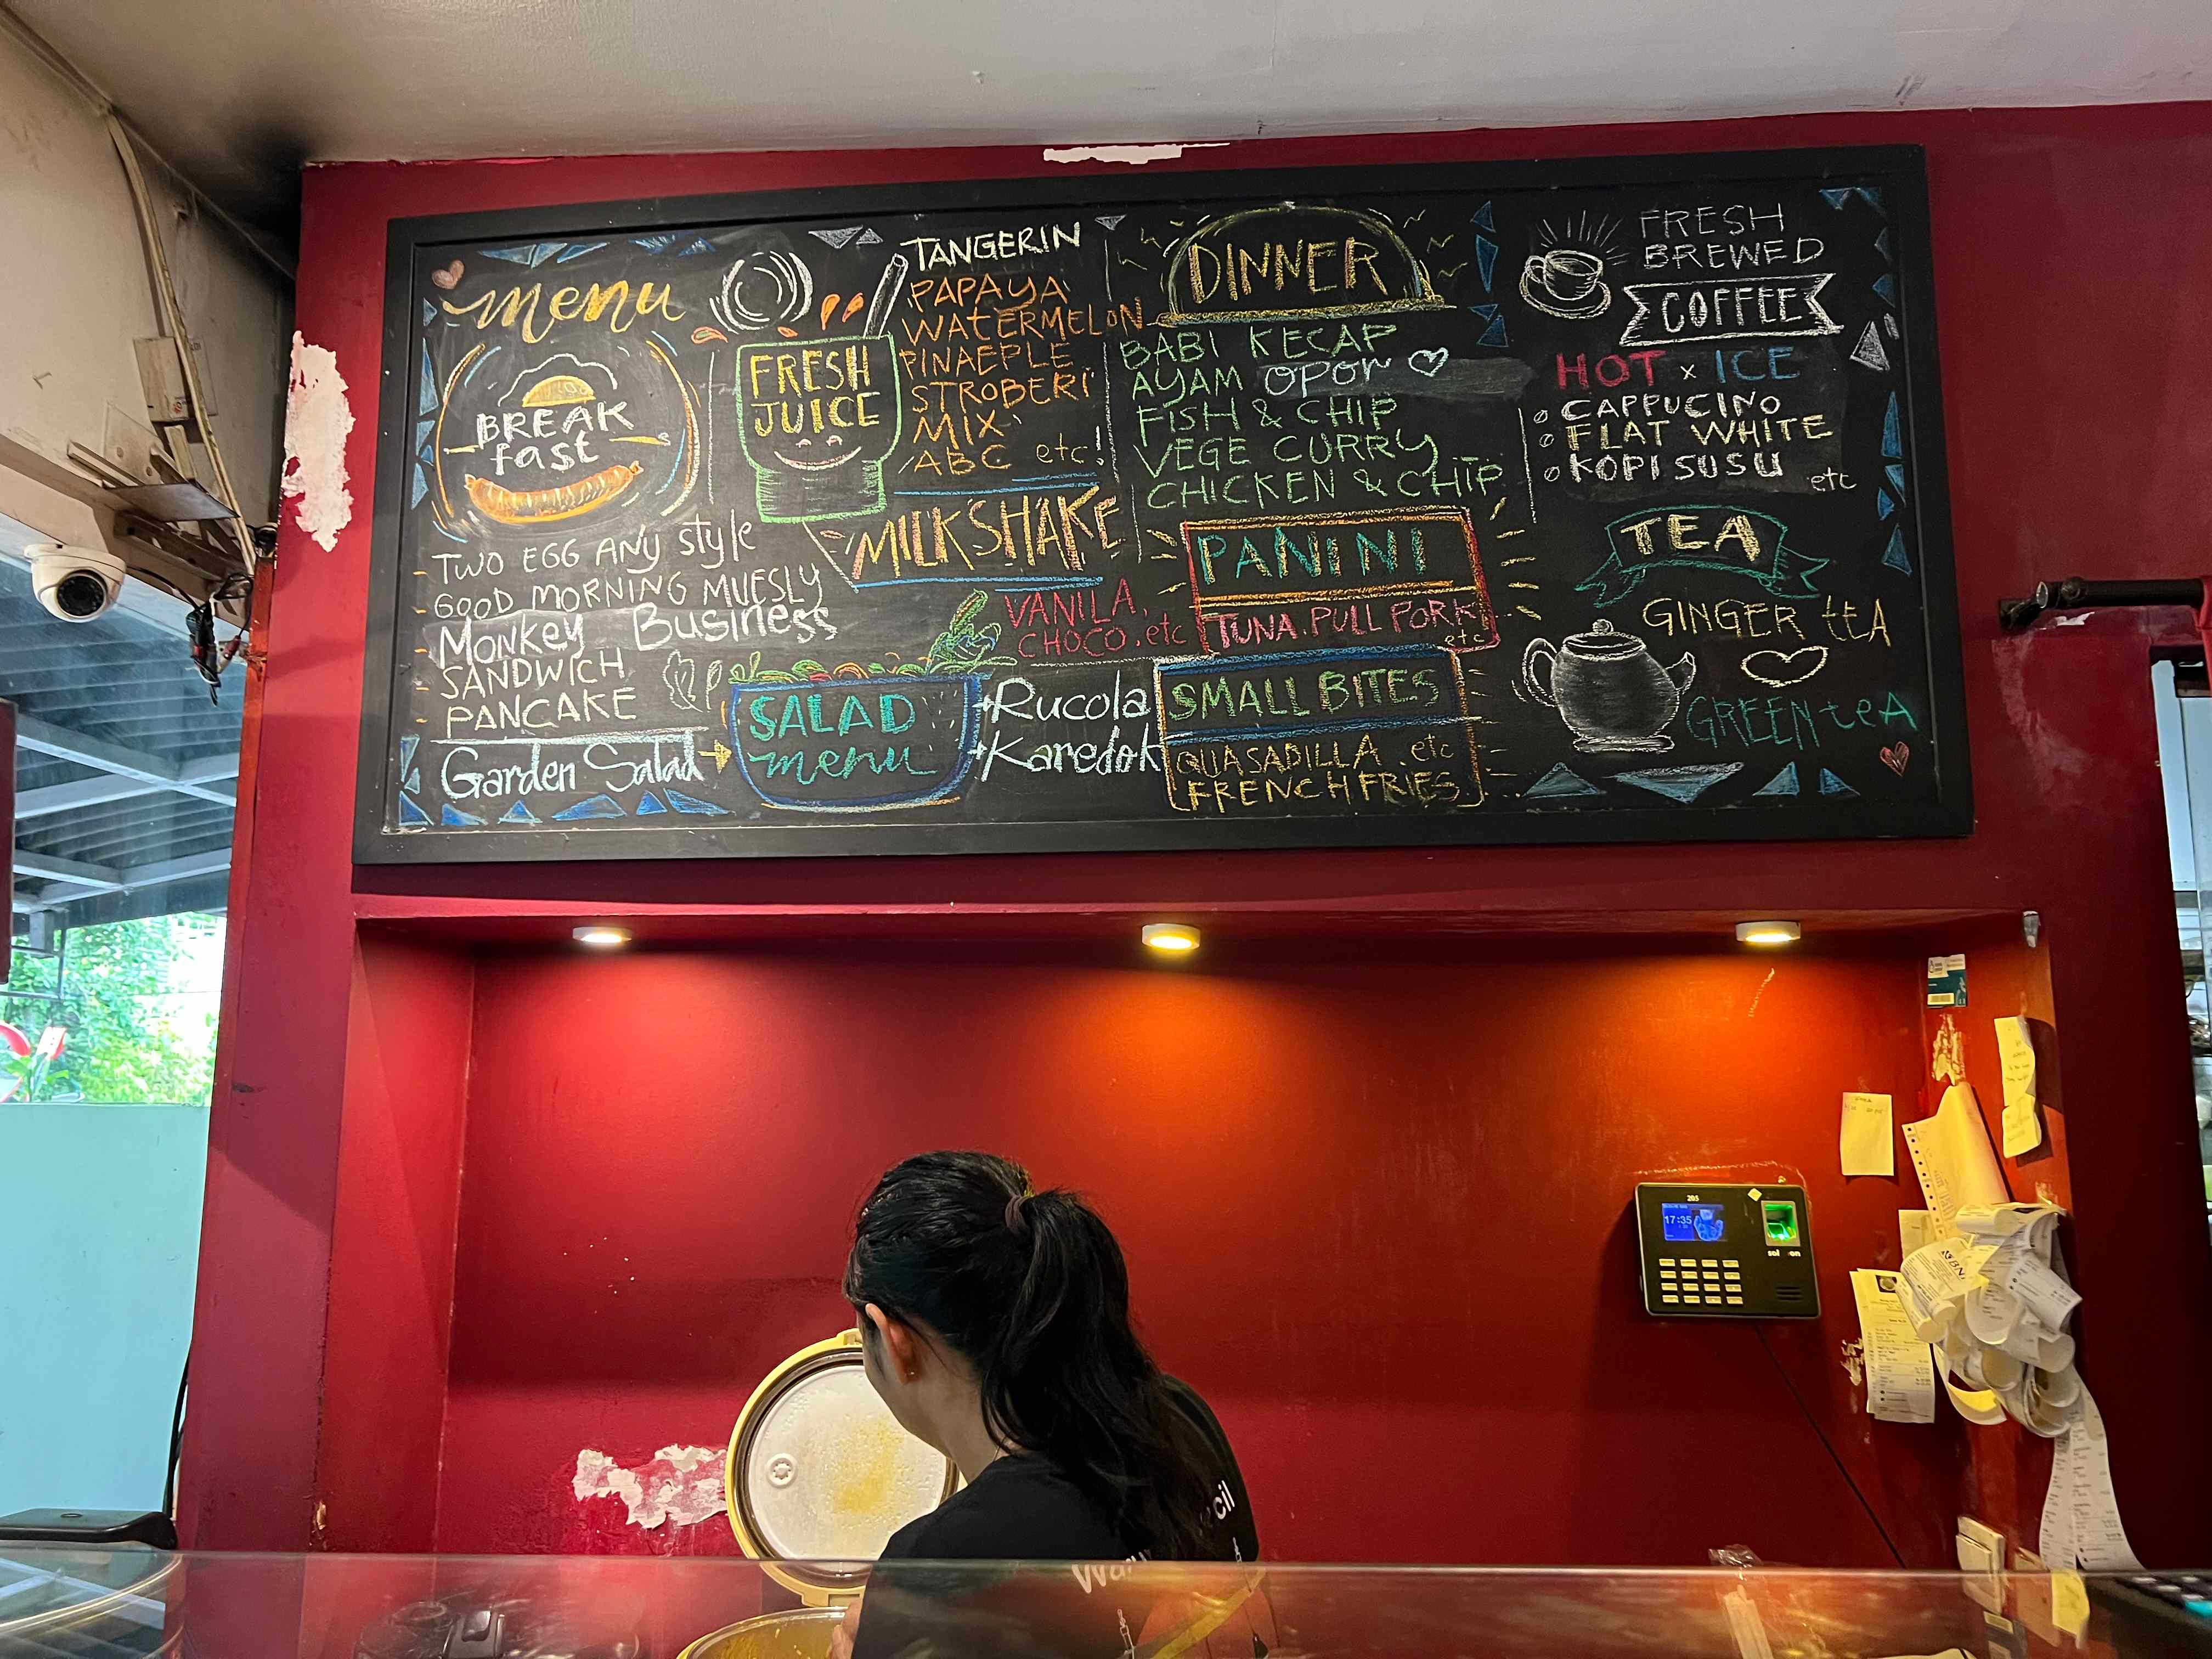 menu
BREAK
fast
- TWO EGG ANY style
- GOOD MORNING MUESLY
- MONKEY BUSINESS
- SANDWICH
- PANCAKE
Garden Salad
FRESH
JUICE
TANGERIN
PAPAYA
WATERMELON
PINAEPLE
STROBERI
MIX
ABC etc
MILKSHAKE
VANILA,
CHOCO. etc
SALAD
menu
Rucola
Karedok
DINNER
BABI KECAP
AYAM OPOR
FISH & CHIP
VEGE CURRY
CHICKEN & CHIP
PANINI
TUNA. PULL PORK
etc
SMALL BITES
QUASADILLA . etc
FRENCH FRIES
FRESH
BREWED
COFFEE
HOT x ICE
CAPPUCINO
FLAT WHITE
KOPI SUSU
etc
TEA
GINGER teA
GREEN teA
17:35